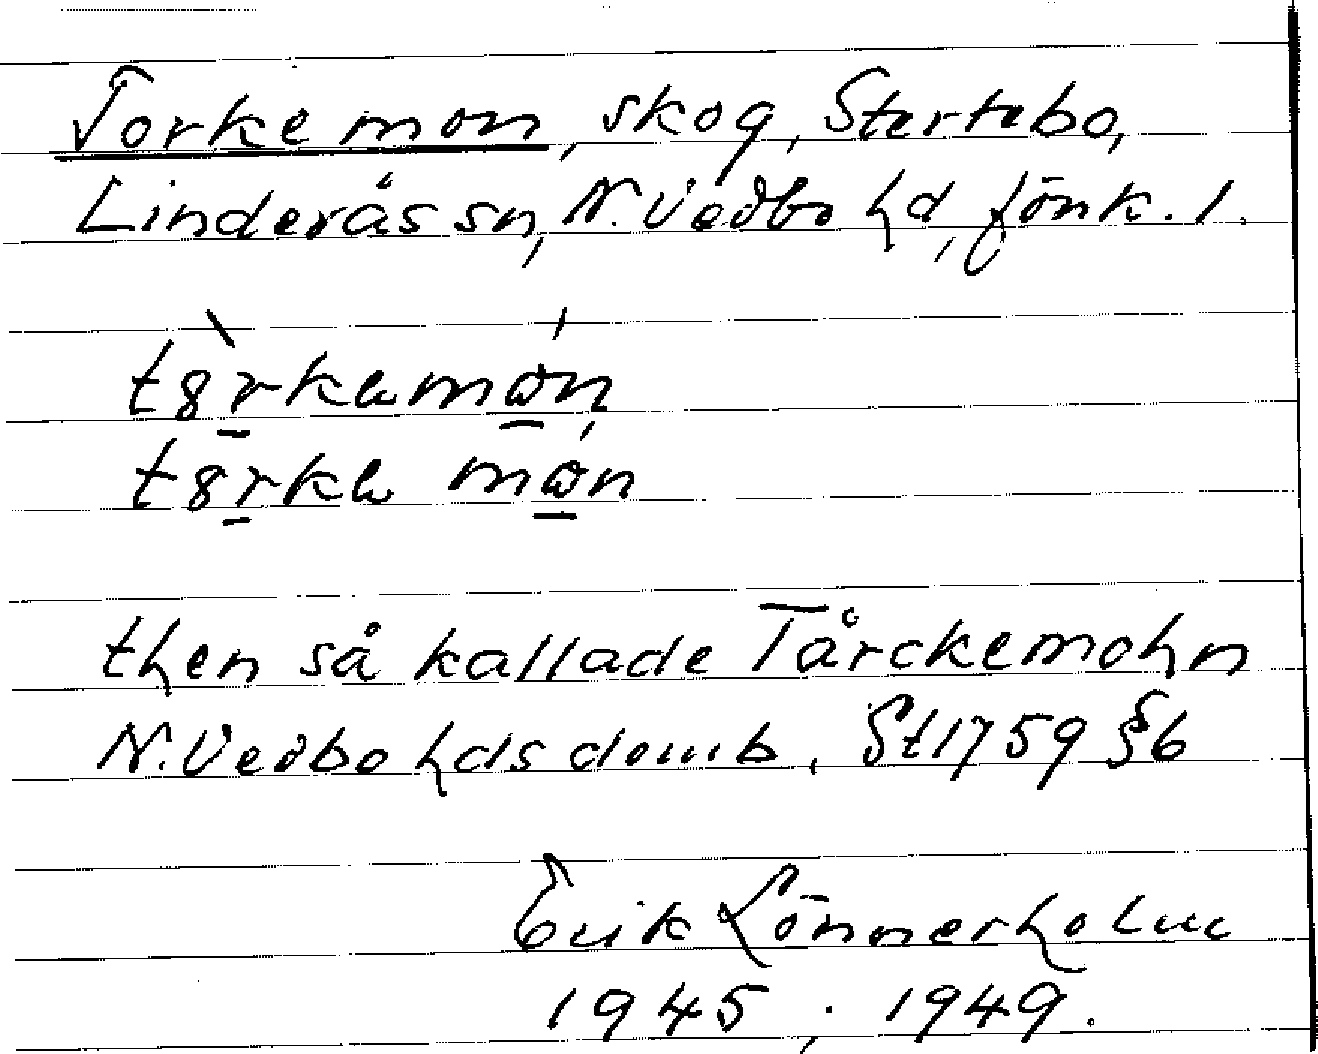 Torkemon, skog, Stertebo,
Linderås sn, N. Vedbo hd, Jönk. l.
then så kallade Tårckemohn
N. Vedbo hds domb. St 1759 §6
Erik Lönnerholm
1945; 1949.